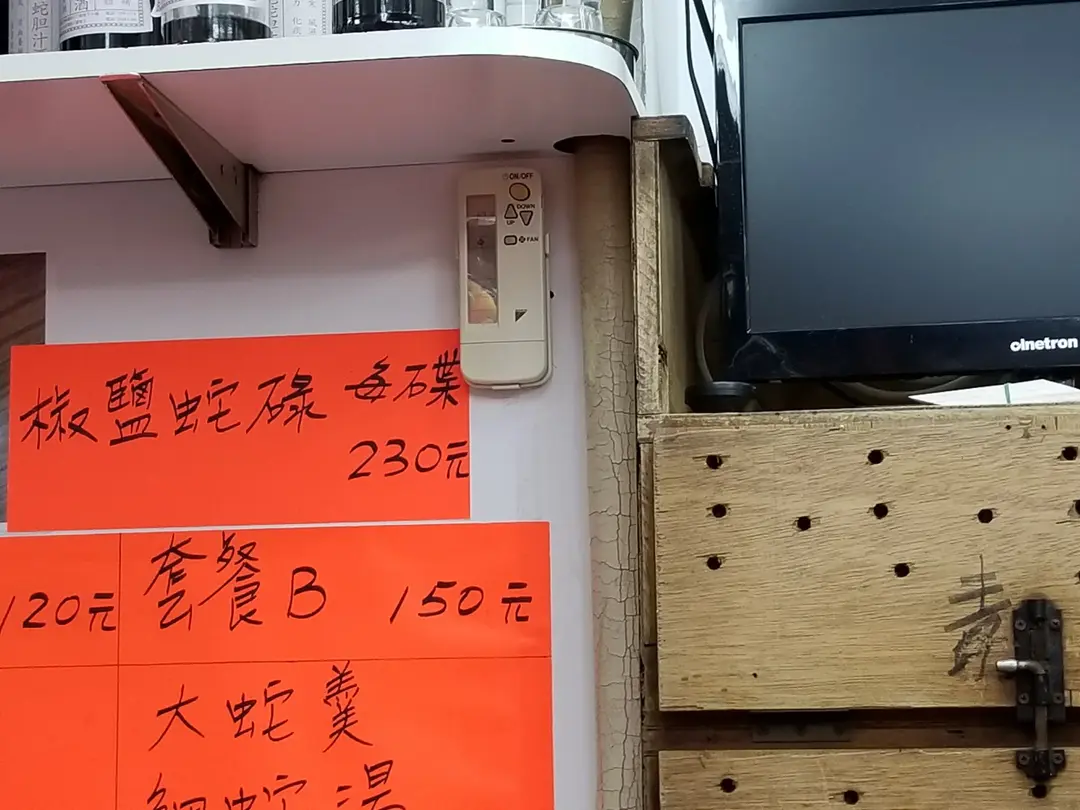 蛇胆汁
酒
ON/OFF
DOWN
UP
FAN
olnetron
椒鹽蛇碌 每碟
230元
120元
套餐B 150元
大蛇羹
蛇湯
毒